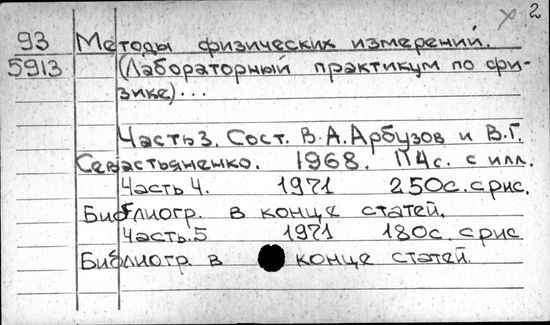 2
93 Методы физических измерений.
5913 (Лабораторный практикум по фи-
зике)...
Часть 3. Сост. В.А.Арбузов и В.Г.
Севастьяненко. 1968. 114с. с илл.
Часть 4. 1971 250с. с рис.
Библиогр. в конце статей.
Часть.5 1971 180с. с рис
Библиогр. в конце статей.